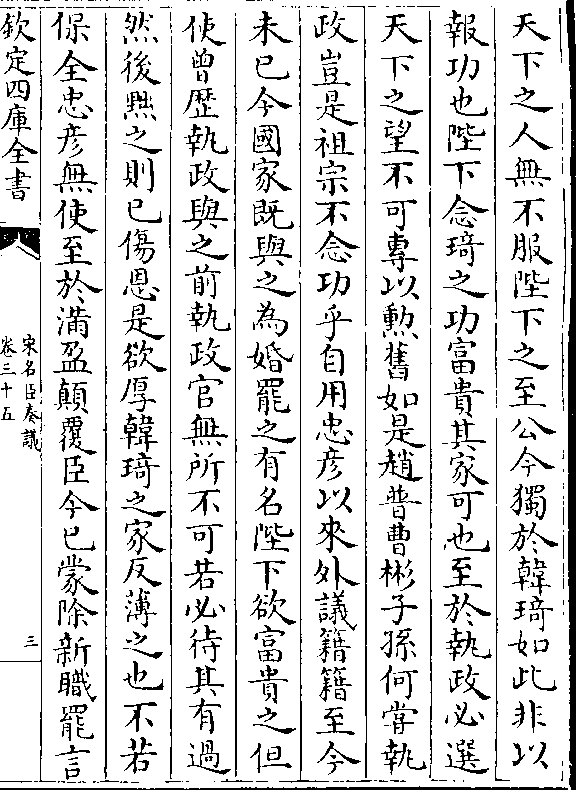 天下之人無不服陛下之至公今獨於韓琦如此非以
報功也陛下念琦之功富貴其家可也至於執政必選
天下之望不可專以勲舊如是趙普曹彬子孫何嘗執
政豈是祖宗不念功乎自用忠彦以來外議籍籍至今
未已今國家既與之為婚罷之有名陛下欲富貴之但
使曾歴執政與之前執政官無所不可若必待其有過
然後黜之則已傷恩是欲厚韓琦之家反薄之也不若
保全忠彦無使至於滿盈顛覆臣今已蒙除新職罷言
欽定四庫全書
宋名臣奏議
卷三十五
三